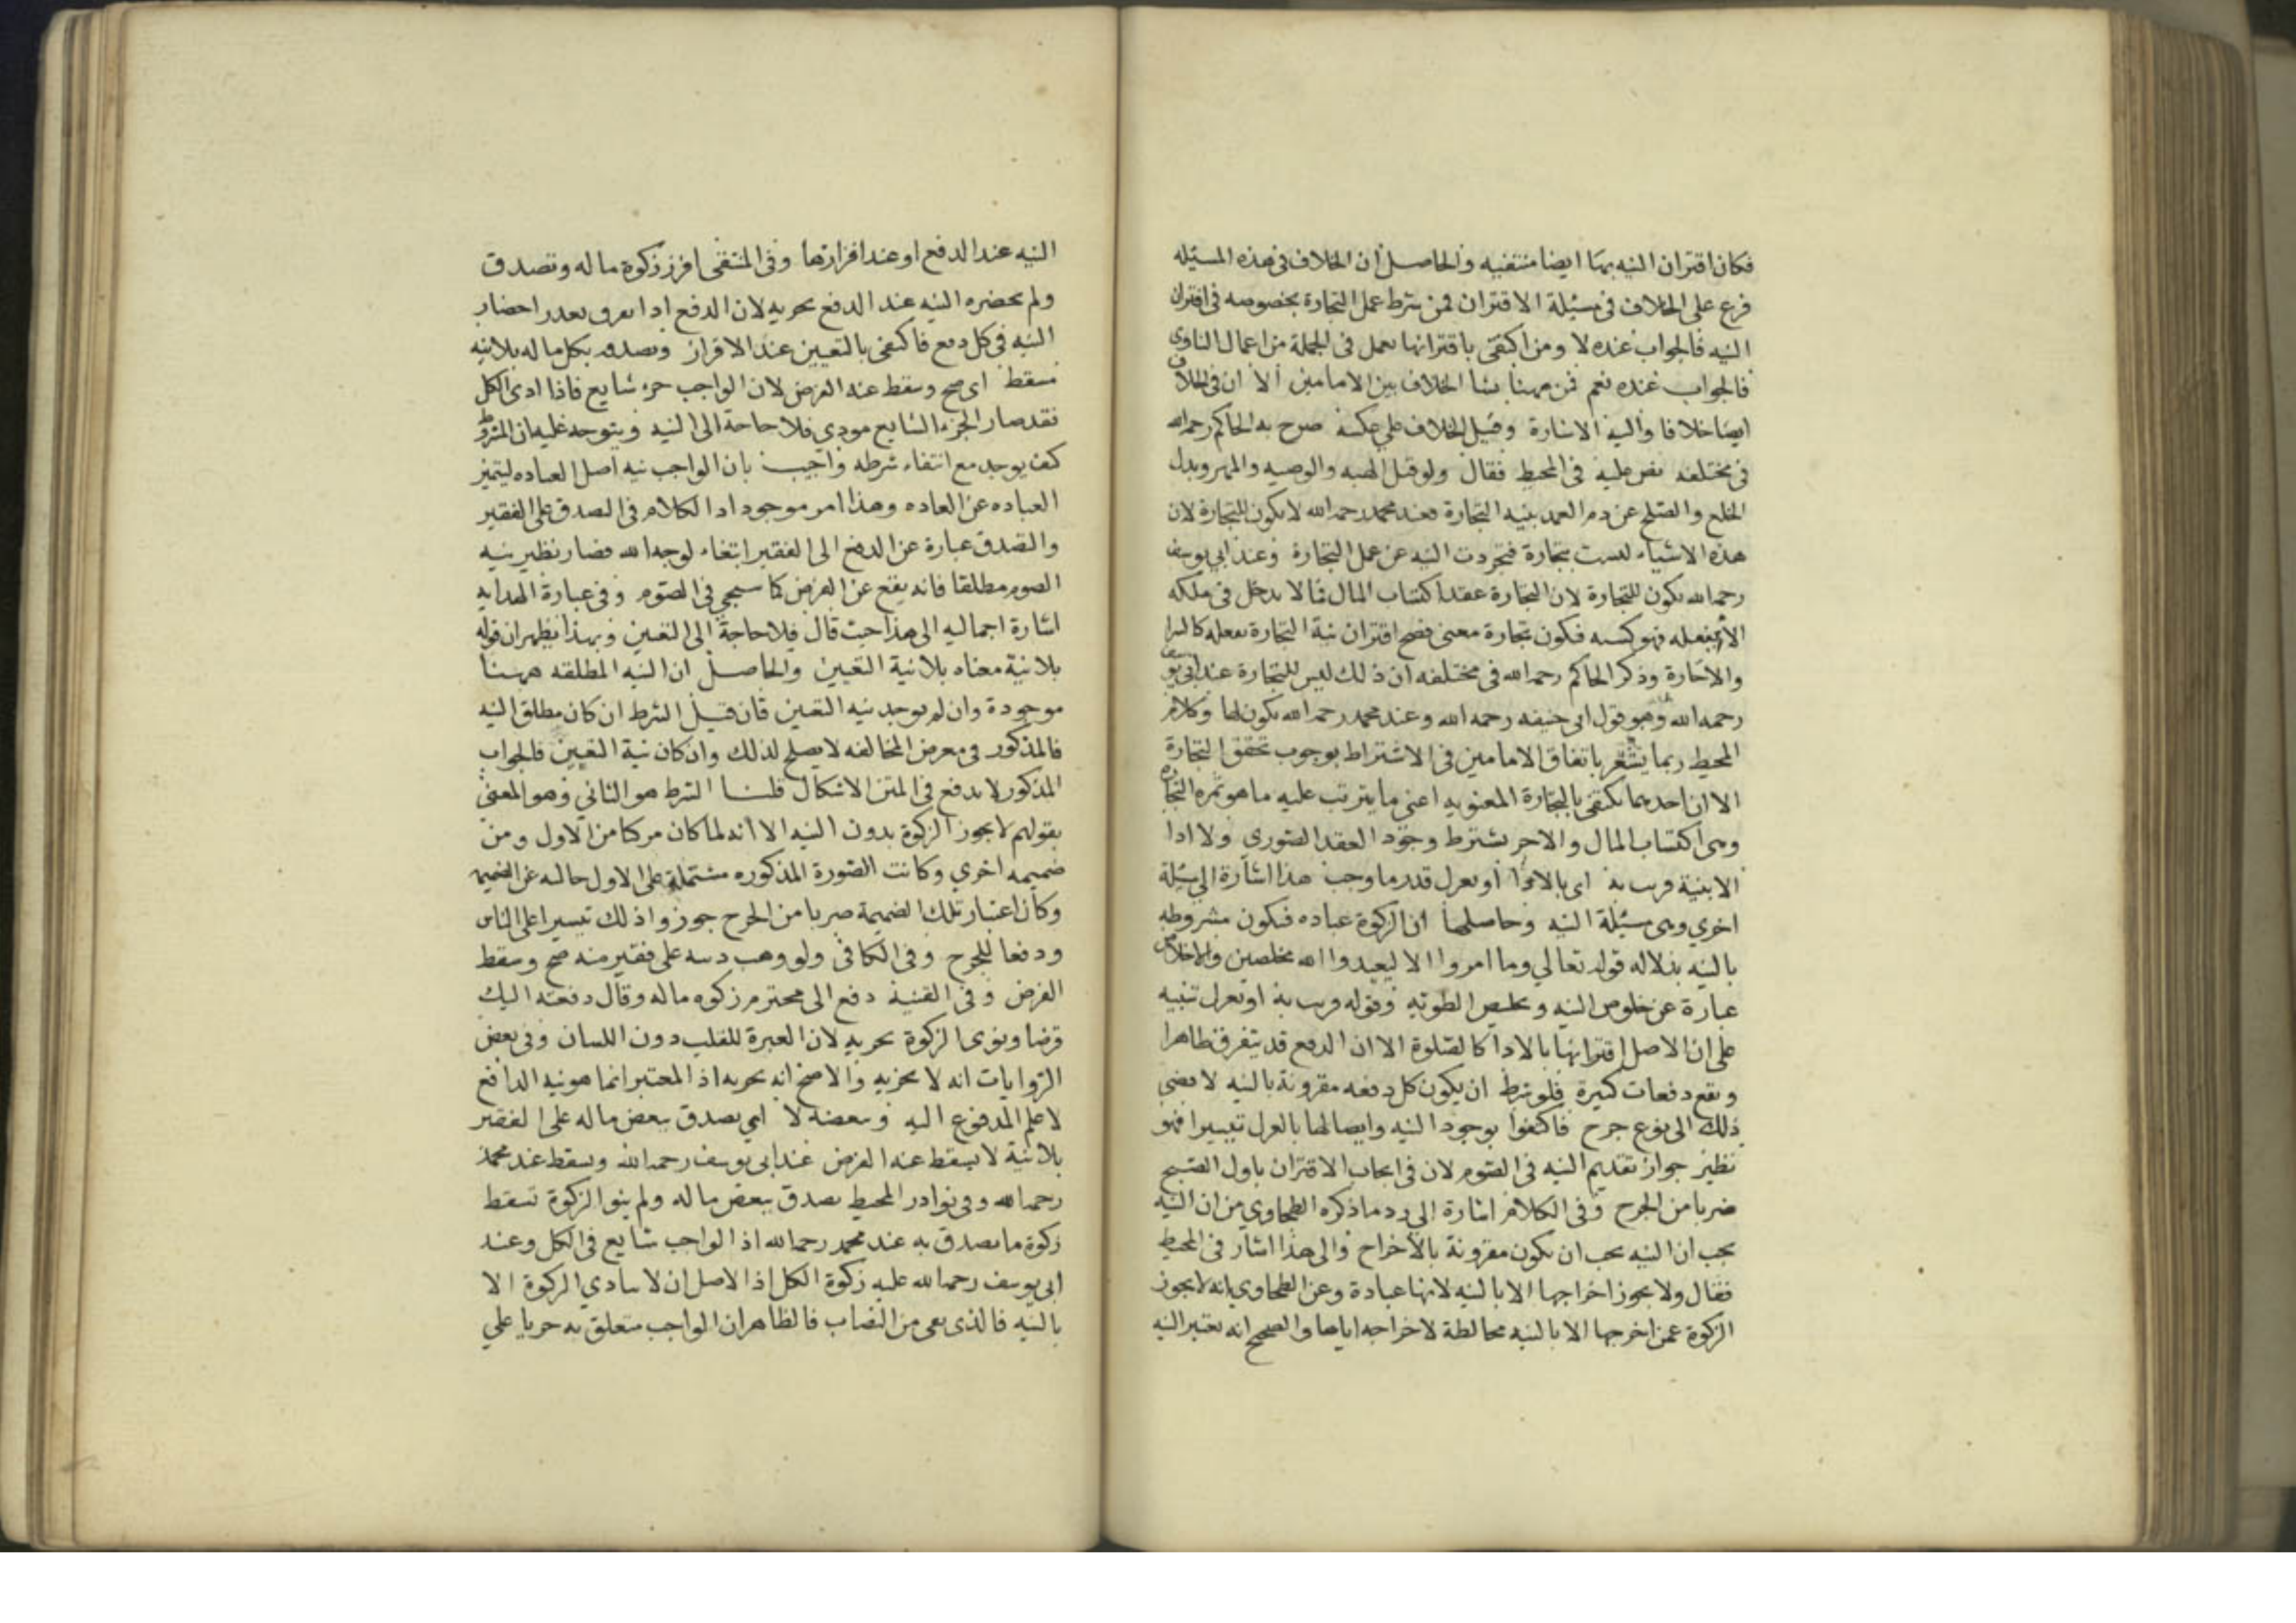 فكان اقتران النيه بها ايضا منتفيه والحاصل ان الخلاف فى هذه المسئله
فرع على الخلاف فى مسئلة الاقتران فمن شرط عمل التجارة بخصوصه فى اقتران
النيه فالجواب عنده لا ومن اكتفى باقترانها بعمل فى الجملة من اعمال الناوى
فالجواب عنده نعم فمن ههنا نشا الخلاف بين الامامين الا ان فى الخلاف
ايضا خلافا واليه الاشارة وقيل الخلاف على عكسه صرح به الحاكم رحمه الله
فى مختلفه نص عليه فى المحيط فقال ولو قبل الهبه والوصيه والمهر وبدل
الخلع والصلح عن دم العمد بنيه التجارة فعند محمد رحمه الله لا يكون للتجارة لان
هذه الاشياء ليست بتجارة فتجردت النيه عن عمل التجارة وعند ابى يوسف
رحمه الله يكون للتجارة لان التجارة عقد اكتساب المال فما لا يدخل فى ملكه
الا بفعله فهو كسبه فيكون تجارة معنى فصح اقتران نية التجارة بفعله كالشرا
والاجارة وذكر الحاكم رحمه الله فى مختلفه ان ذلك ليس للتجارة عند ابى يوسف
رحمه الله وهو قول ابى حنيفه رحمه الله وعند محمد رحمه الله يكون لها وكلام
المحيط ربما يشعر باتفاق الامامين فى الاشتراط بوجوب تحقق التجارة
الا ان احدهما يكتفى بالتجارة المعنويه اعنى ما يترتب عليه ما هو ثمره التجارة
وهى اكتساب المال والاخر يشترط وجود العقد الصورى ولا ادا
الا بنية قربت به اى بالادا او بعزل قدر ما وجب هذا اشارة الى مسئلة
اخرى وهى مسئلة النيه وحاصلها ان الزكوة عباده فيكون مشروطه
بالنيه بدلاله قوله تعالى وما امروا الا ليعبدوا الله مخلصين والاخلاص
عبارة عن خلوص النيه وتخليص الطويه وقوله قربت به او بعزل تنبيه
على ان الاصل اقترانها بالادا كالصلوة الا ان الدفع قد يتفرق ظاهرا
ويقع دفعات كثيرة فلو شرط ان يكون كل دفعه مقرونة بالنيه لافضى
ذلك الى نوع حرج فاكتفوا بوجود النيه وايصالها بالعزل تيسيرا فهو
نظير جواز تقديم النيه فى الصوم لان فى ايجاب الاقتران باول الصبح
ضربا من الحرج وفى الكلام اشارة الى رد ما ذكره الطحاوى من ان النيه
يجب ان النيه يجب ان يكون مقرونة بالاخراج والى هذا اشار فى المحيط
فقال ولا يجوز اخراجها الا بالنيه لانها عبادة وعن الطحاوى انه لا يجوز
الزكوة عمن اخرجها الا بالنيه مخالطة لاخراجه اياها والصحيح انه يعتبر النيه
النيه عند الدفع او عند افرازها وفى المنتقى افرز زكوة ماله وتصدق
ولم يحضره النيه عند الدفع يجزيه لان الدفع اذا تفرق يعذر احضار
النيه فى كل دفع فاكتفى بالتعيين عند الافراز وتصدق بكل ماله بلا نيه
مسقط اى صح وسقط عنه الفرض لان الواجب جزء شايع فاذا ادى الكل
فقد صار الجزء الشايع مودى فلا حاجة الى النيه ويتوجه عليه ان المشروط
كيف يوجد مع انتفاء شرطه واجيب بان الواجب نيه اصل العباده ليتميز
العباده عن العاده وهذا امر موجود اذ الكلام فى التصدق على الفقير
والتصدق عبارة عن الدفع الى الفقير ابتغاء لوجه الله فصار نظير نيه
الصوم مطلقا فانه يقع عن الفرض كما سيجى فى الصوم وفى عبارة الهدايه
اشارة اجماليه الى هذا حيث قال فلا حاجة الى التعيين وبهذا يظهر ان قوله
بلا نية معناه بلا نية التعيين والحاصل ان النيه المطلقه ههنا
موجودة وان لم يوجد نيه التعيين فان قيل الشرط ان كان مطلق النيه
فالمذكور فى معرض المخالفه لا يصلح لذلك وان كان نية التعيين فالجواب
المذكور لا يدفع فى المتن الاشكال قلنا الشرط هو الثانى وهو المعنى
بقولهم لا يجوز الزكوة بدون النيه الا انه لما كان مركبا من الاول ومن
ضميمه اخرى وكانت الصورة المذكوره مشتملة على الاول خاليه عن الضميمه
وكان اعتبار تلك الضميمة ضربا من الحرج جوزوا ذلك تيسيرا على الناس
ودفعا للحرج وفى الكافى ولو وهب دينه على فقير منه صح وسقط
الفرض وفى القنية دفع الى محترم زكوه ماله وقال دفعته اليك
قرضا ونوى الزكوة يجزيه لان العبرة للقلب دون اللسان وفى بعض
الروايات انه لا يجزيه والاصح انه يجزيه اذ المعتبر انما هو نيه الدافع
لا علم المدفوع اليه وببعضه لا اى تصدق ببعض ماله على الفقير
بلا نية لا يسقط عنه الفرض عند ابى يوسف رحمه الله ويسقط عند محمد
رحمه الله وفى نوادر المحيط تصدق ببعض ماله ولم ينو الزكوة تسقط
زكوة ما تصدق به عند محمد رحمه الله اذ الواجب شايع فى الكل وعند
ابى يوسف رحمه الله عليه زكوة الكل اذ الاصل ان لا يتادى الزكوة الا
بالنيه فالذى بقى من النصاب فالظاهر ان الواجب متعلق به جريا على